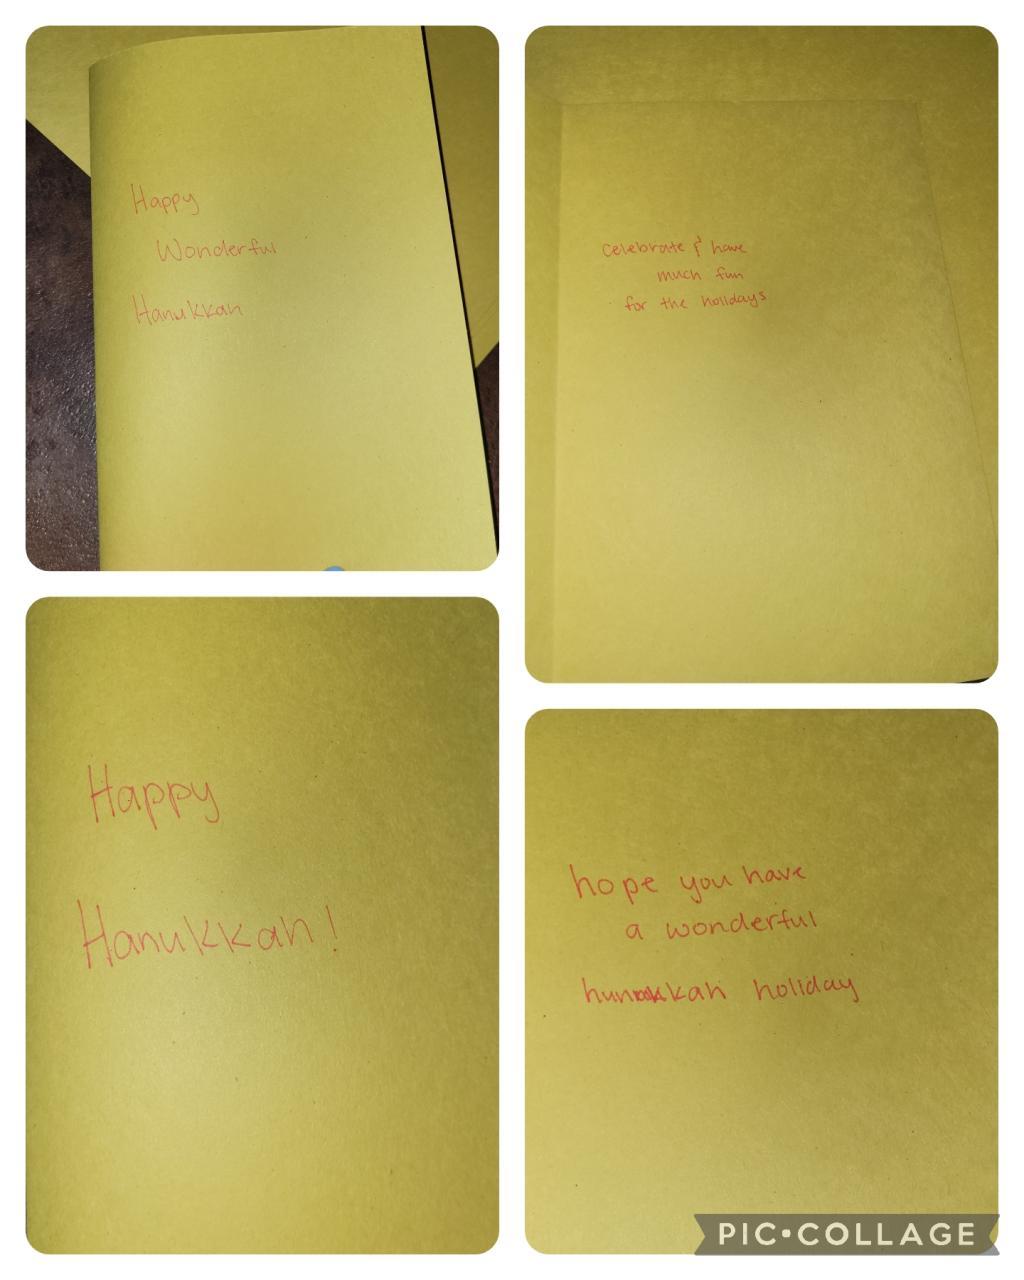 Happy
Wonderful
Hanukkah
celebrate & have
much fun
for the holidays
Happy
Hanukkah!
hope you have
a wonderful
holiday
PIC•COLLAGE